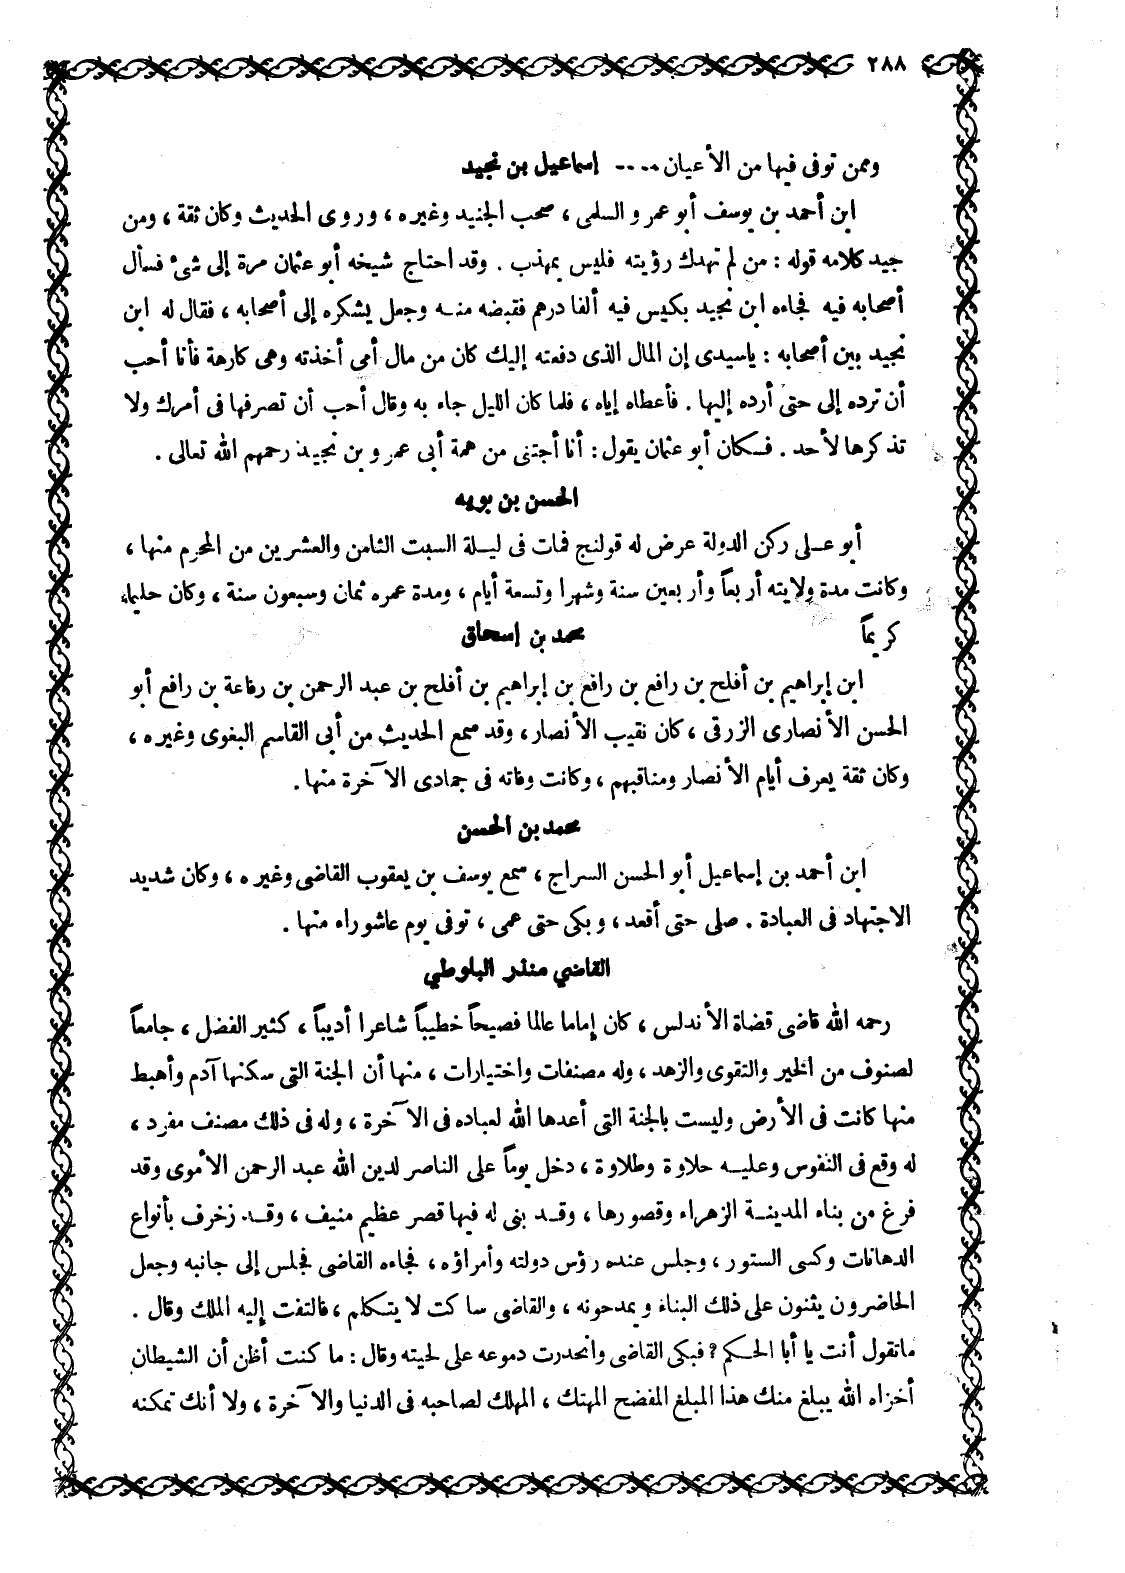 ٢٨٨
وممن توفى فيها من الأعيان ---- إسماعيل بن نجيد
ابن أحمد بن يوسف أبو عمرو السلمى ، صحب الجنيد وغيره ، وروى الحديث وكان ثقة ، ومن
جيد كلامه قوله : من لم تهدك رؤيته فليس بمهذب . وقد احتاج شيخه أبو عثمان مرة إلى شىء فسأل
أصحابه فيه فجاءه ابن نجيد بكيس فيه ألفا درهم فقبضه منه وجعل يشكره إلى أصحابه ، فقال له ابن
نجيد بين أصحابه : ياسيدى إن المال الذى دفعته إليك كان من مال أمى أخذته وهى كارهة فأنا أحب
أن ترده إلى حتى أرده إليها . فأعطاه إياه ، فلما كان الليل جاء به وقال أحب أن تصرفها فى أمرك ولا
تذكرها لأحد . فكان أبو عثمان يقول : أنا أجتنى من همة أبى عمرو بن نجيد رحمهم الله تعالى .
الحسن بن بويه
أبو على ركن الدولة عرض له قولنج فمات فى ليلة السبت الثامن والعشرين من المحرم منها ،
وكانت مدة ولايته أربعاً وأربعين سنة وشهرا وتسعة أيام ، ومدة عمره ثمان وسبعون سنة ، وكان حليماً
كريماً
محمد بن إسحاق
ابن إبراهيم بن أفلح بن رافع بن رافع بن إبراهيم بن أفلح بن عبد الرحمن بن رفاعة بن رافع أبو
الحسن الأنصارى الزرقى ، كان نقيب الأنصار ، وقد سمع الحديث من أبى القاسم البغوى وغيره ،
وكان ثقة يعرف أيام الأنصار ومناقبهم ، وكانت وفاته فى جمادى الآخرة منها .
محمد بن الحسن
ابن أحمد بن إسماعيل أبو الحسن السراج ، سمع يوسف بن يعقوب القاضى وغيره ، وكان شديد
الاجتهاد فى العبادة . صلى حتى أقعد ، وبكى حتى عمى ، توفى يوم عاشوراء منها .
القاضي منذر البلوطي
رحمه الله قاضى قضاة الأندلس ، كان إماما عالما فصيحاً خطيباً شاعرا أديباً ، كثير الفضل ، جامعاً
لصنوف من الخير والتقوى والزهد ، وله مصنفات واختيارات ، منها أن الجنة التى سكنها آدم وأهبط
منها كانت فى الأرض وليست بالجنة التى أعدها الله لعباده فى الآخرة ، وله فى ذلك مصنف مفرد ،
له وقع فى النفوس وعليه حلاوة وطلاوة ، دخل يوماً على الناصر لدين الله عبد الرحمن الأموى وقد
فرغ من بناء المدينة الزهراء وقصورها ، وقد بنى له فيها قصر عظيم منيف ، وقد زخرف بأنواع
الدهانات وكسى الستور ، وجلس عنده رؤس دولته وأمراؤه ، فجاءه القاضى فجلس إلى جانبه وجعل
الحاضرون يثنون على ذلك البناء ويمدحونه ، والقاضى ساكت لا يتكلم ، فالتفت إليه الملك وقال .
ماتقول أنت يا أبا الحكم ؟ فبكى القاضى وانحدرت دموعه على لحيته وقال : ما كنت أظن أن الشيطان
أخزاه الله يبلغ منك هذا المبلغ المفضح المهتك ، المهلك لصاحبه فى الدنيا والآخرة ، ولا أنك تمكنه